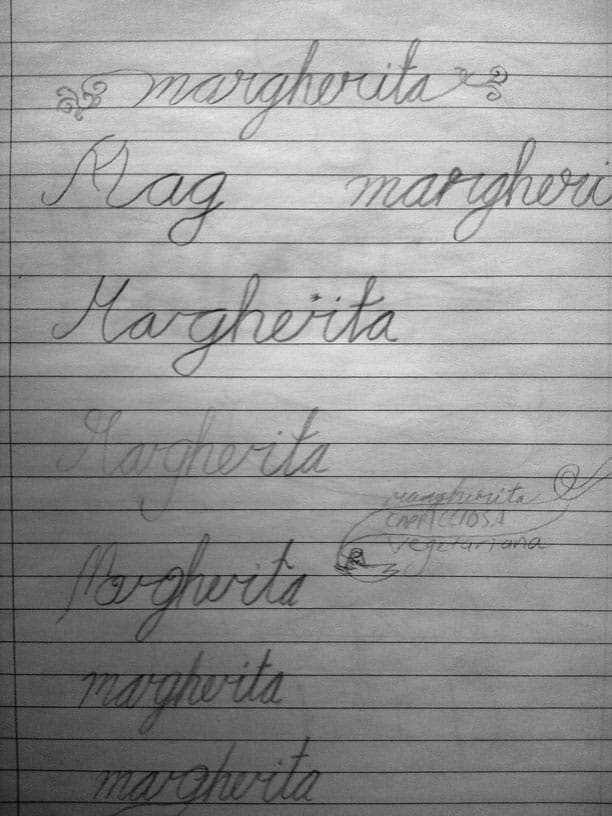 margherita
Mag margheri
Margherita
Margherita
margherita
CAPRICCIOSA
vegetariana
Margherita
margherita
margherita